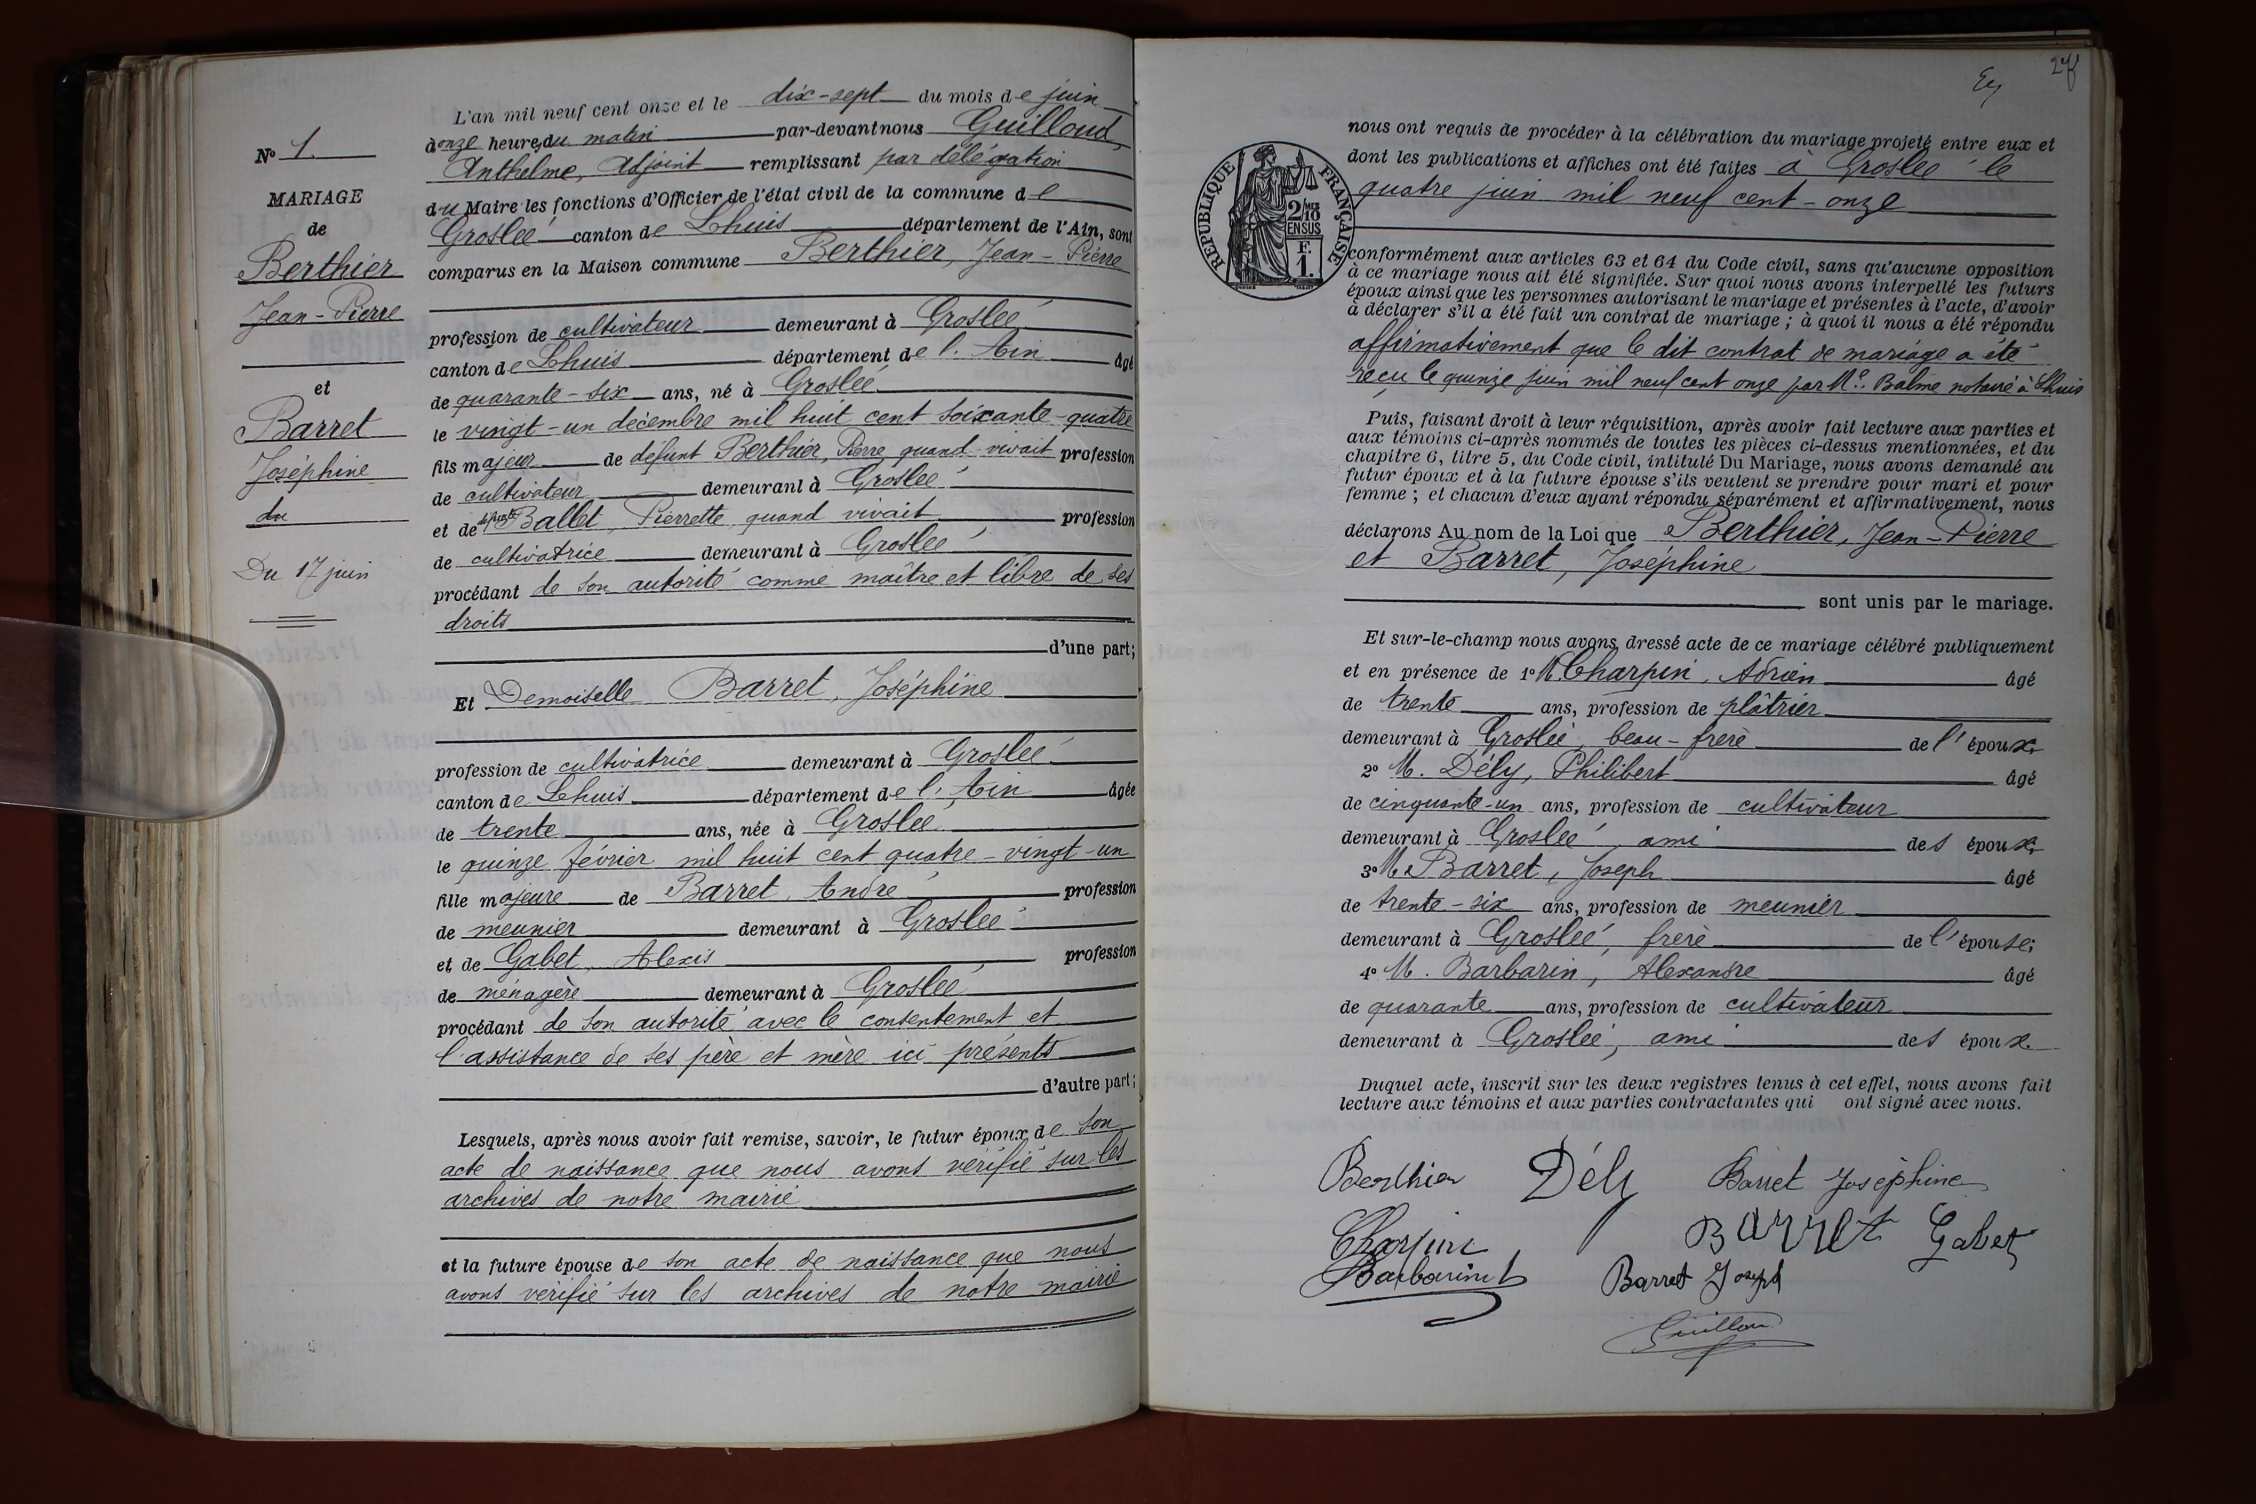 N° 1.
MARIAGE
de
Berthier
Jean-Pierre
et
Barret
Joséphine
du
Du 17 juin
L'an mil neuf cent onze et le dix-sept du mois de juin
à onze heures du matin par-devant nous Guilloud
Anthelme, Adjoint remplissant par délégation
du Maire les fonctions d'Officier de l'état civil de la commune de
Groslée canton de Lhuis département de l'Ain, sont
comparus en la Maison commune Berthier, Jean-Pierre
profession de cultivateur demeurant à Groslée
canton de Lhuis département de l'Ain âgé
de quarante-six ans, né à Groslée
le vingt-un décembre mil huit cent soixante-quatre
fils majeur de défunt Berthier, Pierre quand vivait profession
de cultivateur demeurant à Groslée
et de défunte Ballet, Pierrette quand vivait profession
de cultivatrice demeurant à Groslée
procédant de son autorité comme maître et libre de ses
droits
d'une part;
Et Demoiselle Barret, Joséphine
profession de cultivatrice demeurant à Groslée
canton de Lhuis département de l'Ain âgée
de trente ans, née à Groslée
le quinze février mil huit cent quatre-vingt-un
fille majeure de Barret, André profession
de meunier demeurant à Groslée
et de Gabet, Alexis profession
de ménagère demeurant à Groslée
procédant de son autorité avec le consentement et
l'assistance de ses père et mère ici présents
d'autre part;
Lesquels, après nous avoir fait remise, savoir, le futur époux de son
acte de naissance que nous avons vérifié sur les
archives de notre mairie
et la future épouse de son acte de naissance que nous
avons vérifié sur les archives de notre mairie
27
RÉPUBLIQUE FRANÇAISE
2/10
EN SUS
F.
1.
nous ont requis de procéder à la célébration du mariage projeté entre eux et
dont les publications et affiches ont été faites à Groslée le
quatre juin mil neuf cent-onze
conformément aux articles 63 et 64 du Code civil, sans qu'aucune opposition
à ce mariage nous ait été signifiée. Sur quoi nous avons interpellé les futurs
époux ainsi que les personnes autorisant le mariage et présentes à l'acte, d'avoir
à déclarer s'il a été fait un contrat de mariage ; à quoi il nous a été répondu
affirmativement que le dit contrat de mariage a été
reçu le quinze juin mil neuf cent onze par Me. Balme notaire à Lhuis
Puis, faisant droit à leur réquisition, après avoir fait lecture aux parties et
aux témoins ci-après nommés de toutes les pièces ci-dessus mentionnées, et du
chapitre 6, titre 5, du Code civil, intitulé Du Mariage, nous avons demandé au
futur époux et à la future épouse s'ils veulent se prendre pour mari et pour
femme ; et chacun d'eux ayant répondu séparément et affirmativement, nous
déclarons Au nom de la Loi que Berthier, Jean-Pierre
et Barret, Joséphine
sont unis par le mariage.
Et sur-le-champ nous avons dressé acte de ce mariage célébré publiquement
et en présence de 1° M. Charpin, Adrien âgé
de trente ans, profession de plâtrier
demeurant à Groslée, beau-frère de l'époux.
2° M. Dély, Philibert âgé
de cinquante-un ans, profession de cultivateur
demeurant à Groslée ami des époux.
3° M. Barret, Joseph âgé
de trente-six ans, profession de meunier
demeurant à Groslée, frère de l'épouse;
4° M. Barbarin, Alexandre âgé
de quarante ans, profession de cultivateur
demeurant à Groslée, ami des époux.
Duquel acte, inscrit sur les deux registres tenus à cet effet, nous avons fait
lecture aux témoins et aux parties contractantes qui ont signé avec nous.
Berthier Dély Barret Joséphine
Charpin Barret Gabet
Barbarin Barret Joseph
Guilloud